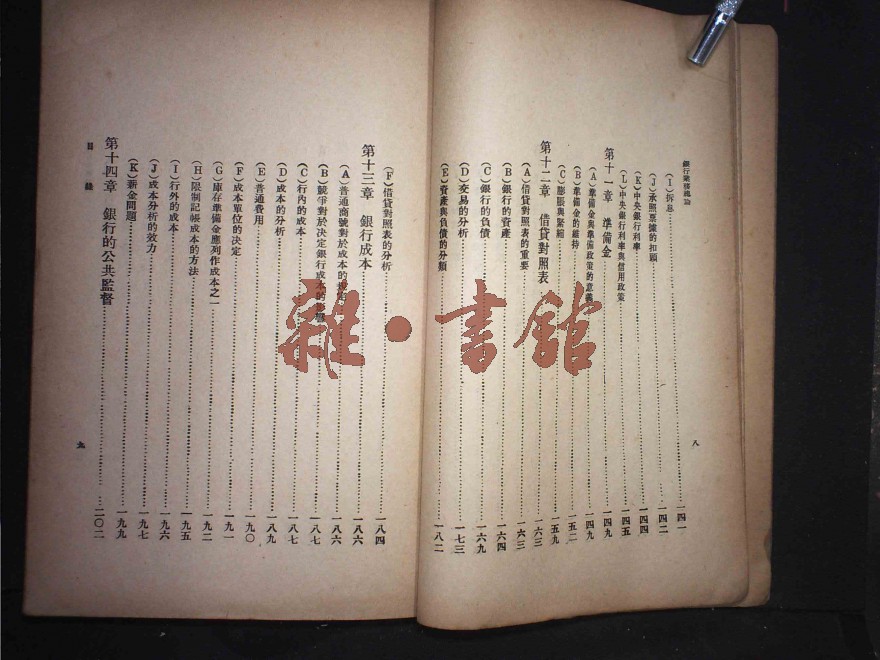 銀行業務概論
(I)拆息……一四一
(J)承照票據的扣頭……一四二
(K)中央銀行利率……一四四
(L)中央銀行利率與信用政策……一四五
第十一章 準備金……一四九
(A)準備金與準備政策的意義……一四九
(B)準備金的維持……一五二
(C)膨脹與緊縮……一五九
第十二章 借貸對照表……一六三
(A)借貸對照表的重要……一六三
(B)銀行的資產……一六四
(C)銀行的負債……一六九
(D)交易的分析……一七三
(E)資產與負債的分類……一八二
八
(F)借貸對照表的分析……一八四
第十三章 銀行成本……一八六
(A)普通商號對於成本的……一八六
(B)競爭對於决定銀行成本的影響……一八七
(C)行內的成本……一八七
(D)成本的分析……一八九
(E)普通費用……一九〇
(F)成本單位的决定……一九一
(G)庫存準備金應列作成本之一……一九二
(H)限制記帳成本的方法……一九五
(I)行外的成本……一九六
(J)成本分析的效力……一九七
(K)薪金問題……一九九
第十四章 銀行的公共監督……二〇二
目錄
九
雜·書館